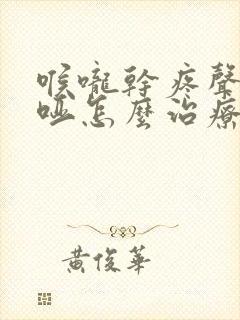 喉嚨幹疼聲
啞怎麼治療
黃俊華